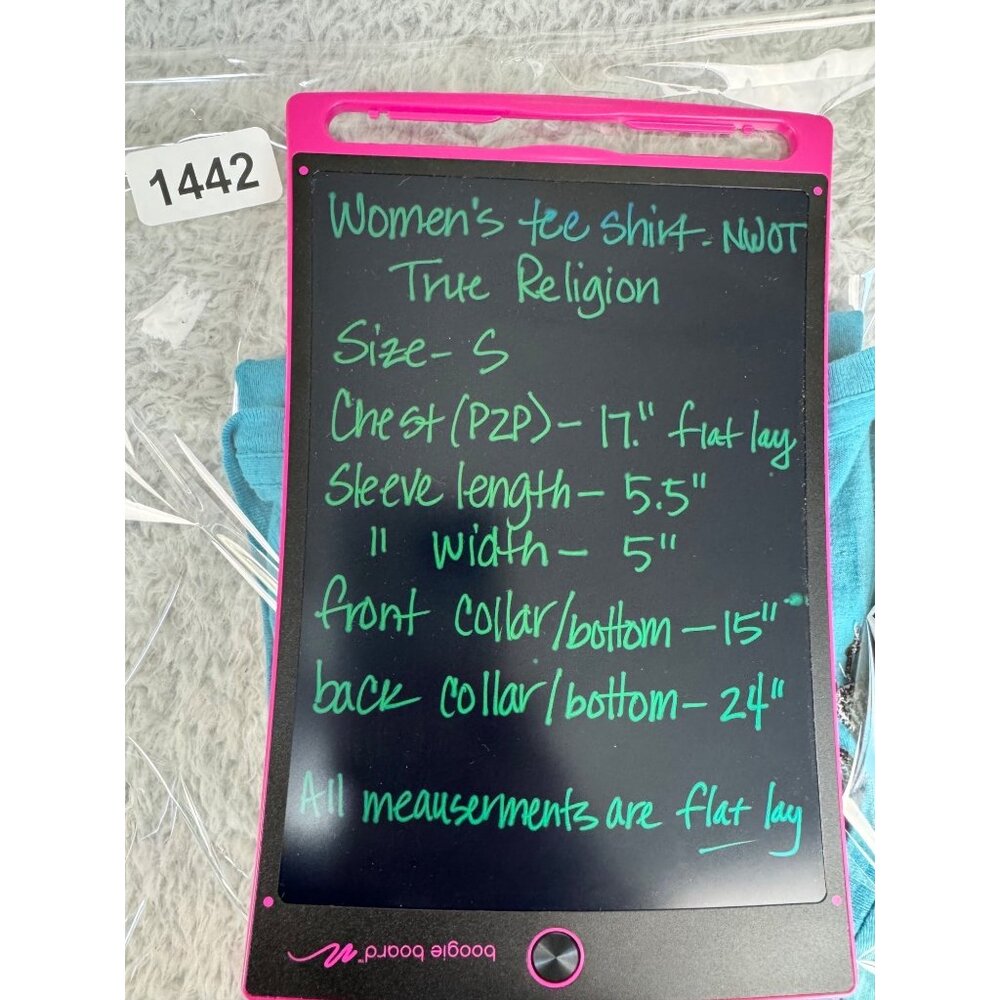 1442
Women's tee shirt - NWOT
True Religion
Size - S
Chest (P2P) - 17." flat lay
Sleeve length - 5.5"
" width - 5"
front collar/bottom - 15"
back collar/bottom - 24"
All meauserments are flat lay
boogie board™